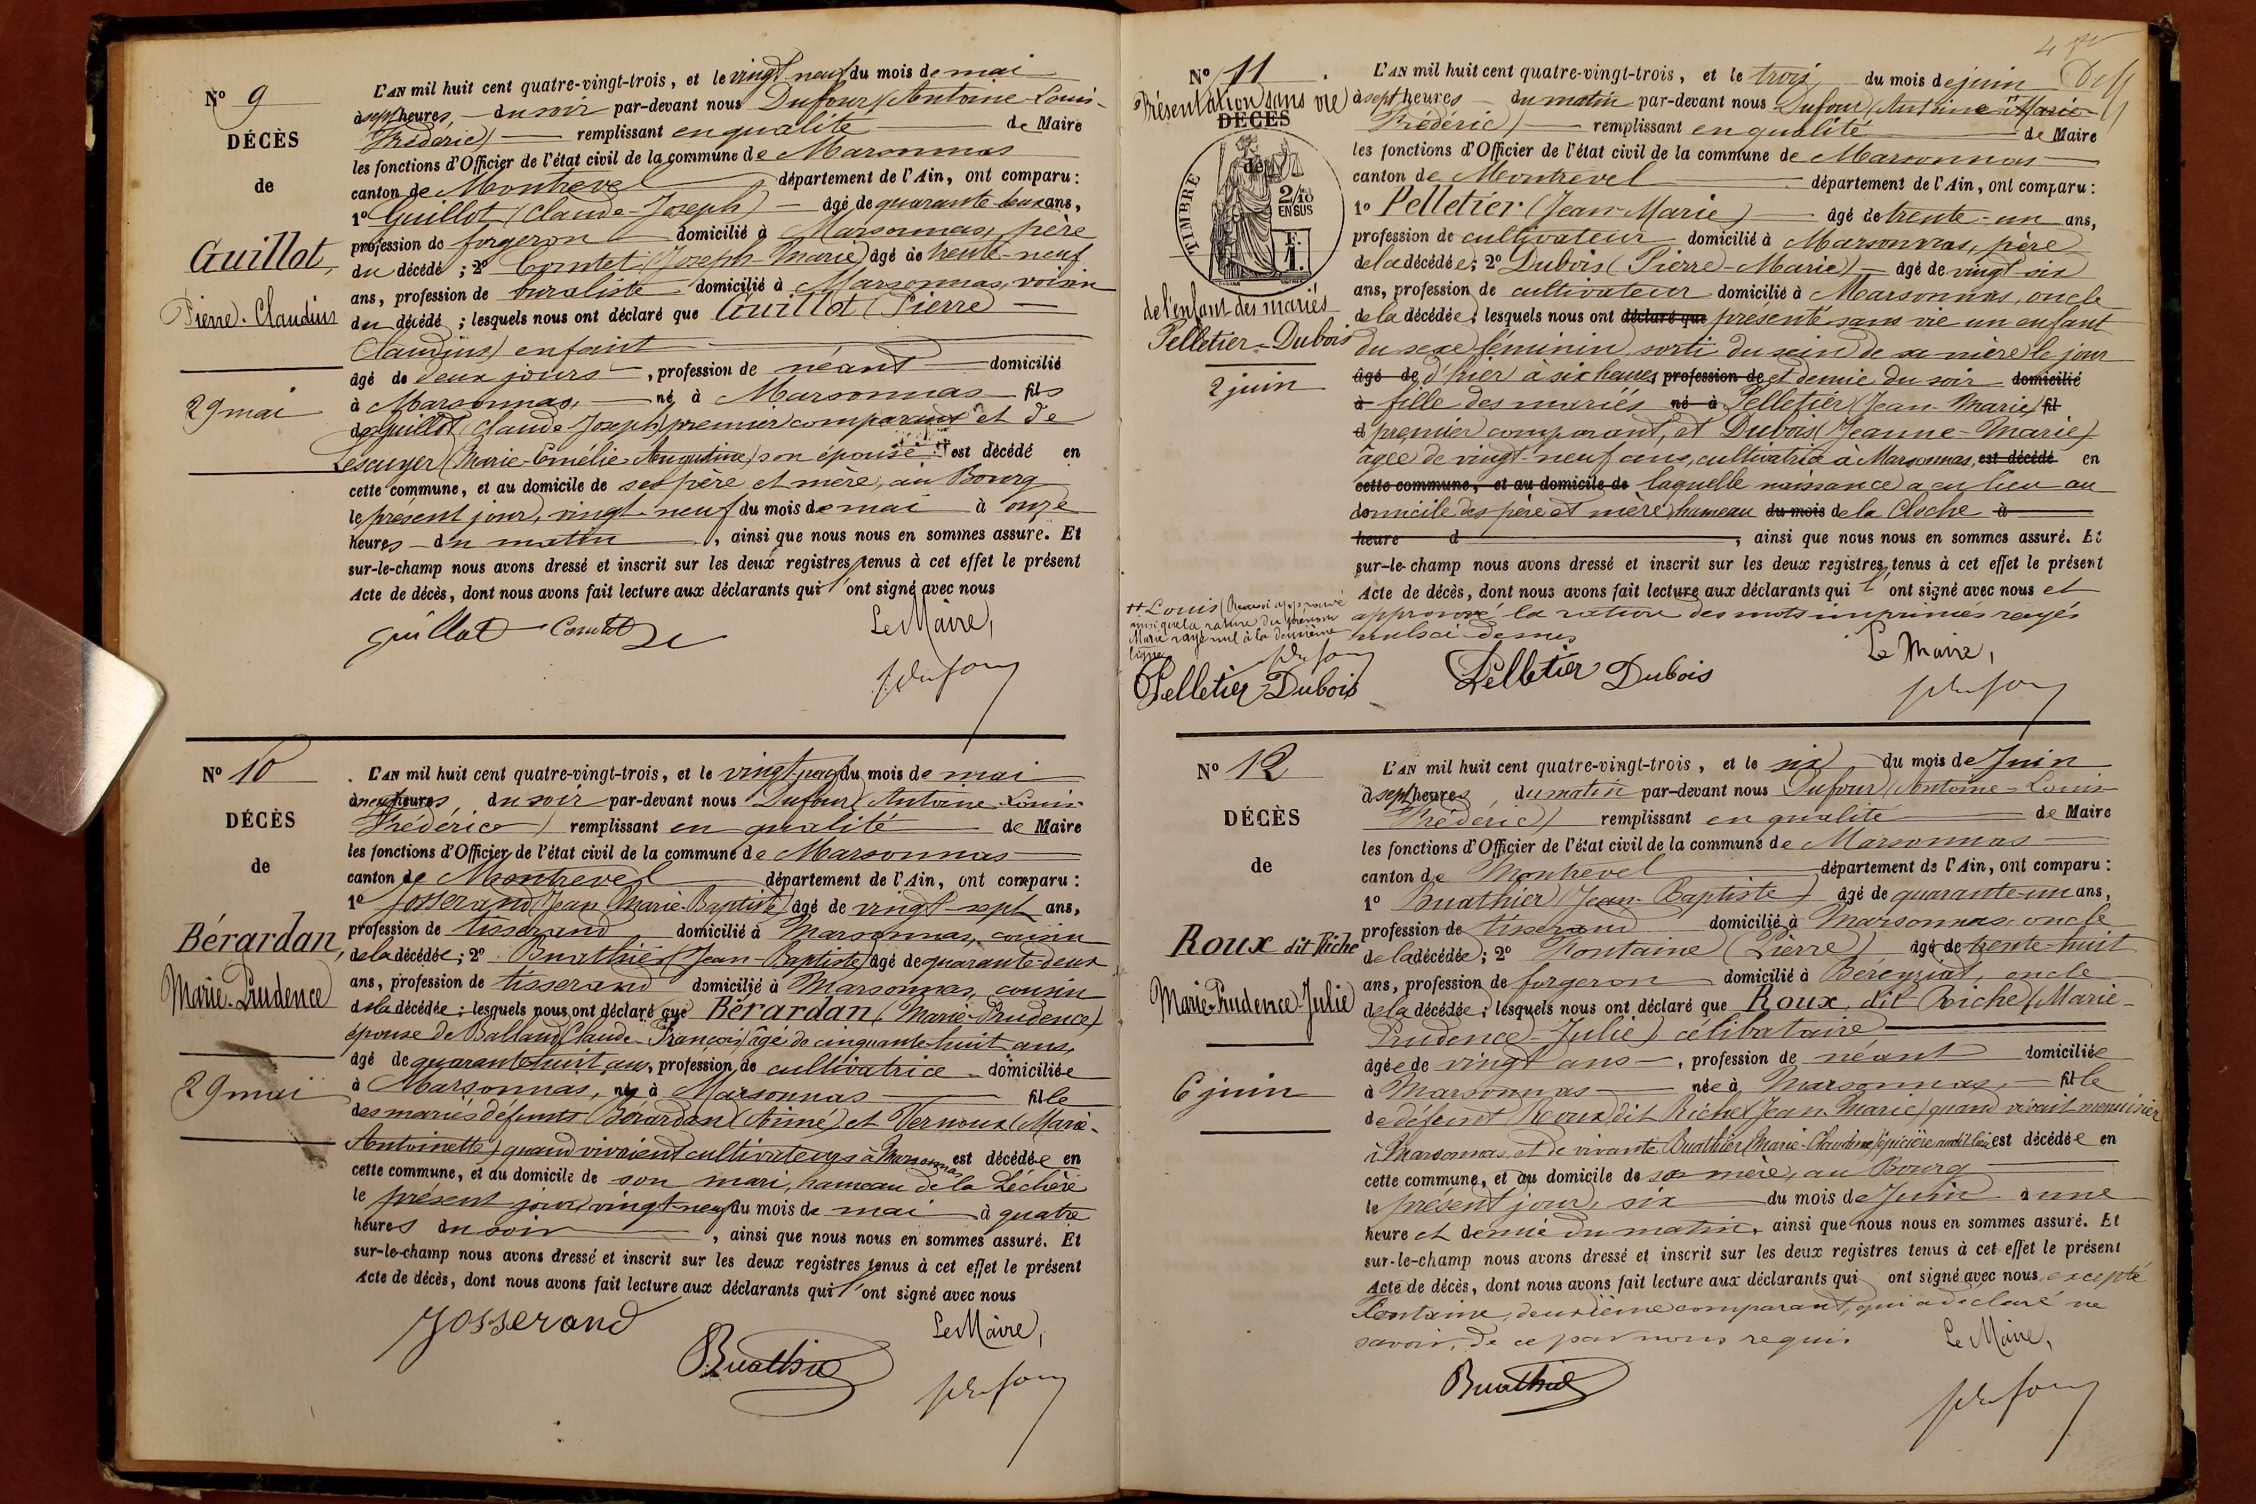 N° 9
DÉCÈS
de
Guillot,
Pierre-Claudius
29 mai
L'AN mil huit cent quatre-vingt-trois, et le vingt-neuf du mois de mai
à sept heures du soir par-devant nous Dufour (Antoine-Louis-
Frédéric) remplissant en qualité de Maire
les fonctions d'Officier de l'état civil de la commune de Marsonnas
canton de Montrevel département de l'Ain, ont comparu :
1° Guillot (Claude-Joseph) âgé de quarante-deux ans,
profession de forgeron domicilié à Marsonnas, père
du décédé ; 2° Comtet (Joseph-Marie) âgé de trente-neuf
ans, profession de buraliste domicilié à Marsonnas, voisin
du décédé ; lesquels nous ont déclaré que Guillot (Pierre
Claudius) enfant
âgé de deux jours, profession de néant domicilié
à Marsonnas, né à Marsonnas fils
de Guillot (Claude-Joseph) premier comparant et de
Lescuyer (Marie-Emélie-Augustine) son épouse est décédé en
cette commune, et au domicile de ses père et mère, au Bourg
le présent jour, vingt-neuf du mois de mai à onze
heures du matin, ainsi que nous nous en sommes assuré. Et
sur-le-champ nous avons dressé et inscrit sur les deux registres tenus à cet effet le présent
Acte de décès, dont nous avons fait lecture aux déclarants qui l'ont signé avec nous
Guillot Comtet Le Maire,
Dufour
N° 10
DÉCÈS
de
Bérardan,
Marie-Prudence
29 mai
L'AN mil huit cent quatre-vingt-trois, et le vingt-neuf du mois de mai
à neuf heures du soir par-devant nous Dufour (Antoine-Louis-
Frédéric) remplissant en qualité de Maire
les fonctions d'Officier de l'état civil de la commune de Marsonnas
canton de Montrevel département de l'Ain, ont comparu :
1° Josserand (Jean-Marie-Baptiste) âgé de vingt-sept ans,
profession de tisserand domicilié à Marsonnas, cousin
de la décédée ; 2° Buathier (Jean-Baptiste) âgé de quarante-deux
ans, profession de tisserand domicilié à Marsonnas, cousin
de la décédée ; lesquels nous ont déclaré que Bérardan (Marie-Prudence)
épouse de Balland (Claude-François) âgé de cinquante-huit ans,
âgé de quarante-huit ans, profession de cultivatrice domiciliée
à Marsonnas, née à Marsonnas fille
des mariés défunts Bérardan (Aimé) et Vernoux (Marie-
Antoinette) quand vivaient cultivateurs à Marsonnas est décédée en
cette commune, et au domicile de son mari, hameau de la Léchère
le présent jour, vingt-neuf du mois de mai à quatre
heures du soir, ainsi que nous nous en sommes assuré. Et
sur-le-champ nous avons dressé et inscrit sur les deux registres tenus à cet effet le présent
Acte de décès, dont nous avons fait lecture aux déclarants qui l'ont signé avec nous
Josserand Le Maire,
Buathier Dufour
N° 11
Présentation sans vie
DÉCÈS
de
TIMBRE
2/10
EN SUS
F.
1.
de l'enfant des mariés
Pelletier-Dubois
2 juin
L'AN mil huit cent quatre-vingt-trois, et le trois du mois de juin
à sept heures du matin par-devant nous Dufour (Antoine-Marie-
Frédéric) remplissant en qualité de Maire
les fonctions d'Officier de l'état civil de la commune de Marsonnas
canton de Montrevel département de l'Ain, ont comparu :
1° Pelletier (Jean-Marie) âgé de trente-un ans,
profession de cultivateur domicilié à Marsonnas, père
de la décédée ; 2° Dubois (Pierre-Marie) âgé de vingt-six
ans, profession de cultivateur domicilié à Marsonnas, oncle
de la décédée ; lesquels nous ont déclaré que présenté sans vie un enfant
du sexe féminin, sorti du sein de sa mère le jour
âgé de d'hier à six heures profession de et demie du soir domicilié
à fille des mariés né à Pelletier (Jean-Marie) fil
d premier comparant, et Dubois (Jeanne-Marie)
âgée de vingt-neuf ans, cultivatrice à Marsonnas, est décédé en
cette commune, et au domicile de laquelle naissance a eu lieu au
domicile des père et mère, hameau du mois de la Cloche à
heure d, ainsi que nous nous en sommes assuré. Et
sur-le-champ nous avons dressé et inscrit sur les deux registres tenus à cet effet le présent
Acte de décès, dont nous avons fait lecture aux déclarants qui l'ont signé avec nous et
approuvé la rature des mots imprimés rayés
nuls ci-dessus
Louis (Renvoi approuvé
ainsi que la rature du prénom
Marie rayé nul à la deuxième
ligne
Dufour
Pelletier Dubois
Pelletier Dubois Le Maire,
Dufour
N° 12
DÉCÈS
de
Roux dit Riche
Marie-Prudence-Julie
6 juin
L'AN mil huit cent quatre-vingt-trois, et le six du mois de Juin
à sept heures du matin par-devant nous Dufour (Antoine-Louis-
Frédéric) remplissant en qualité de Maire
les fonctions d'Officier de l'état civil de la commune de Marsonnas
canton de Montrevel département de l'Ain, ont comparu :
1° Buathier (Jean-Baptiste) âgé de quarante-un ans,
profession de tisserand domicilié à Marsonnas oncle
de la décédée ; 2° Fontaine (Pierre) âgé de trente-huit
ans, profession de forgeron domicilié à Béreyziat, oncle
de la décédée ; lesquels nous ont déclaré que Roux, dit Riche (Marie-
Prudence-Julie) célibataire
âgée de vingt ans, profession de néant domiciliée
à Marsonnas née à Marsonnas, fille
de défunt Roux dit Riche (Jean-Marie) quand vivait menuisier
à Marsonnas, et de vivante Buathier (Marie-Claudine) épicière audit lieu est décédée en
cette commune, et au domicile de sa mère, au Bourg
le présent jour, six du mois de Juin à une
heure et demie du matin, ainsi que nous nous en sommes assuré. Et
sur-le-champ nous avons dressé et inscrit sur les deux registres tenus à cet effet le présent
Acte de décès, dont nous avons fait lecture aux déclarants qui ont signé avec nous, excepté
Fontaine, deuxième comparant, qui a déclaré ne
savoir, de ce par nous requis. Le Maire,
Buathier Dufour